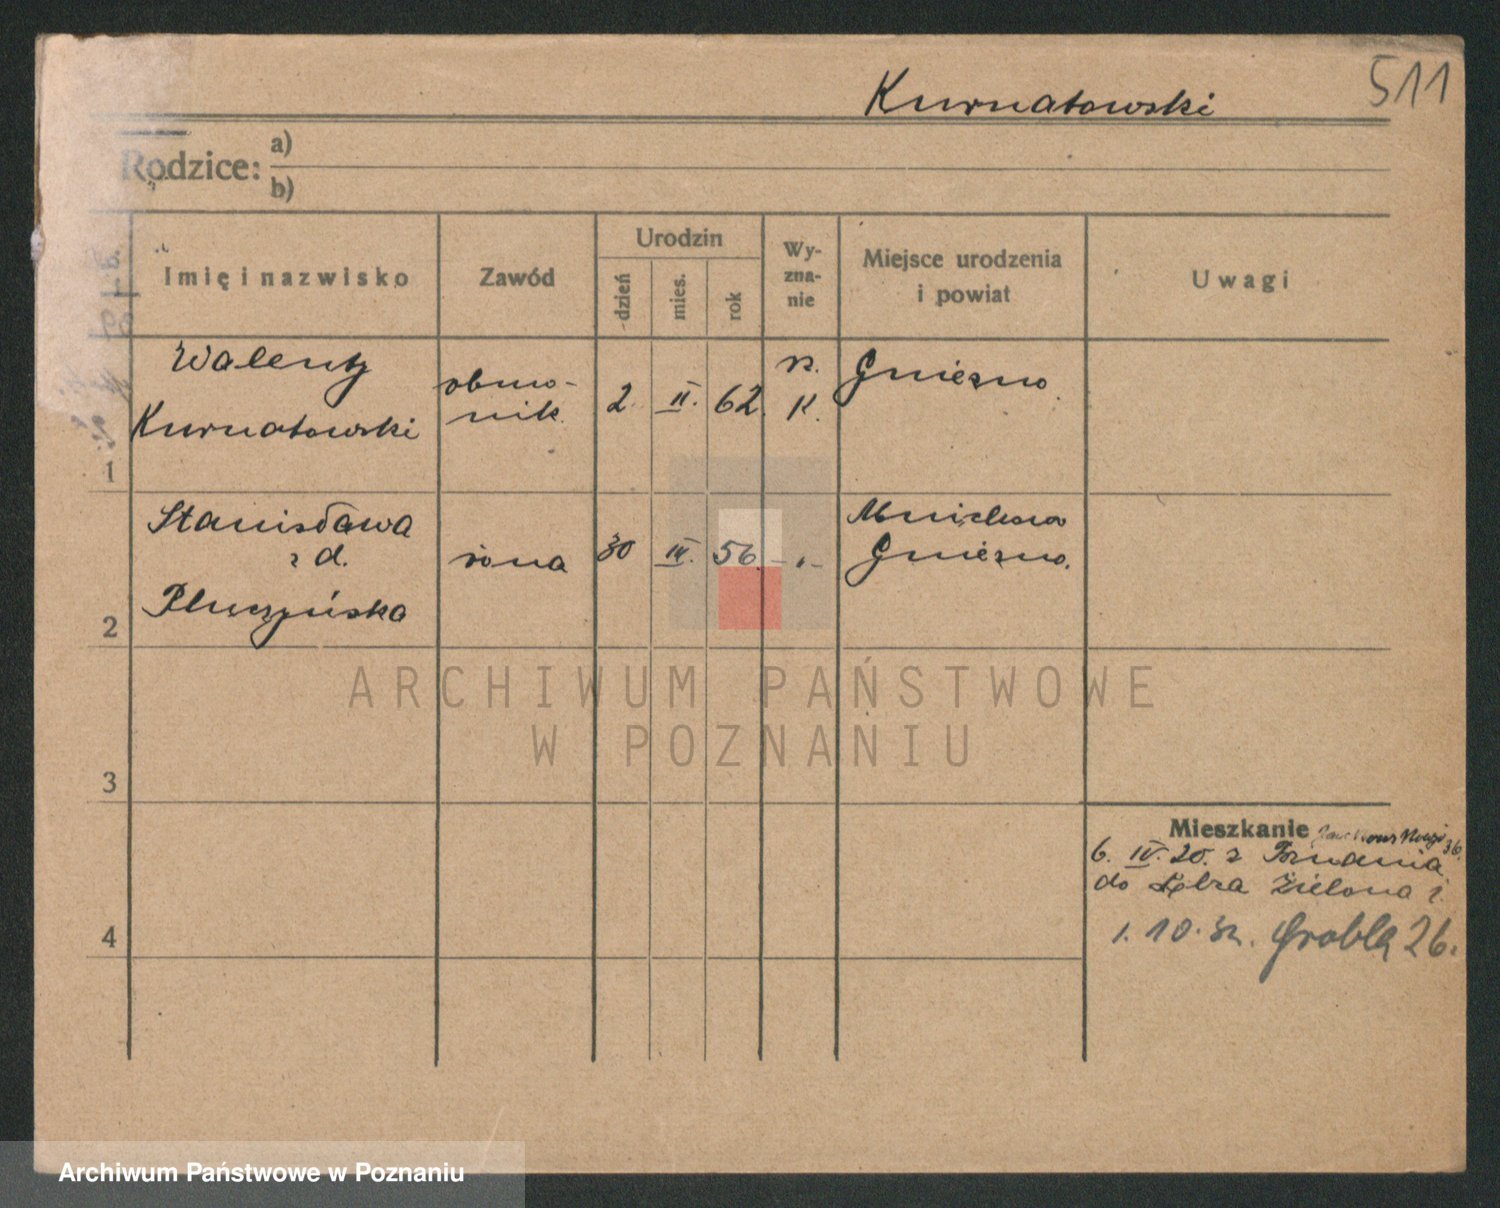 511
Kurnatowski
Rodzice: a)
b)
Imię i nazwisko
Zawód
Urodzin
dzień
mies.
rok
Wy-
zna-
nie
Miejsce urodzenia
i powiat
Uwagi
1
Walenty
Kurnatowski
obuw-
nik.
2.
II.
62.
rz.
K.
Gniezno
2
Stanisława
z d.
żona
30
56.
-"-
Gniezno.
3
4
Mieszkanie 36.
6. IV. 20. z Poznania
do Zielona
1. 10. 32. Grobla 26.
ARCHIWUM PAŃSTWOWE
W POZNANIU
Archiwum Państwowe w Poznaniu